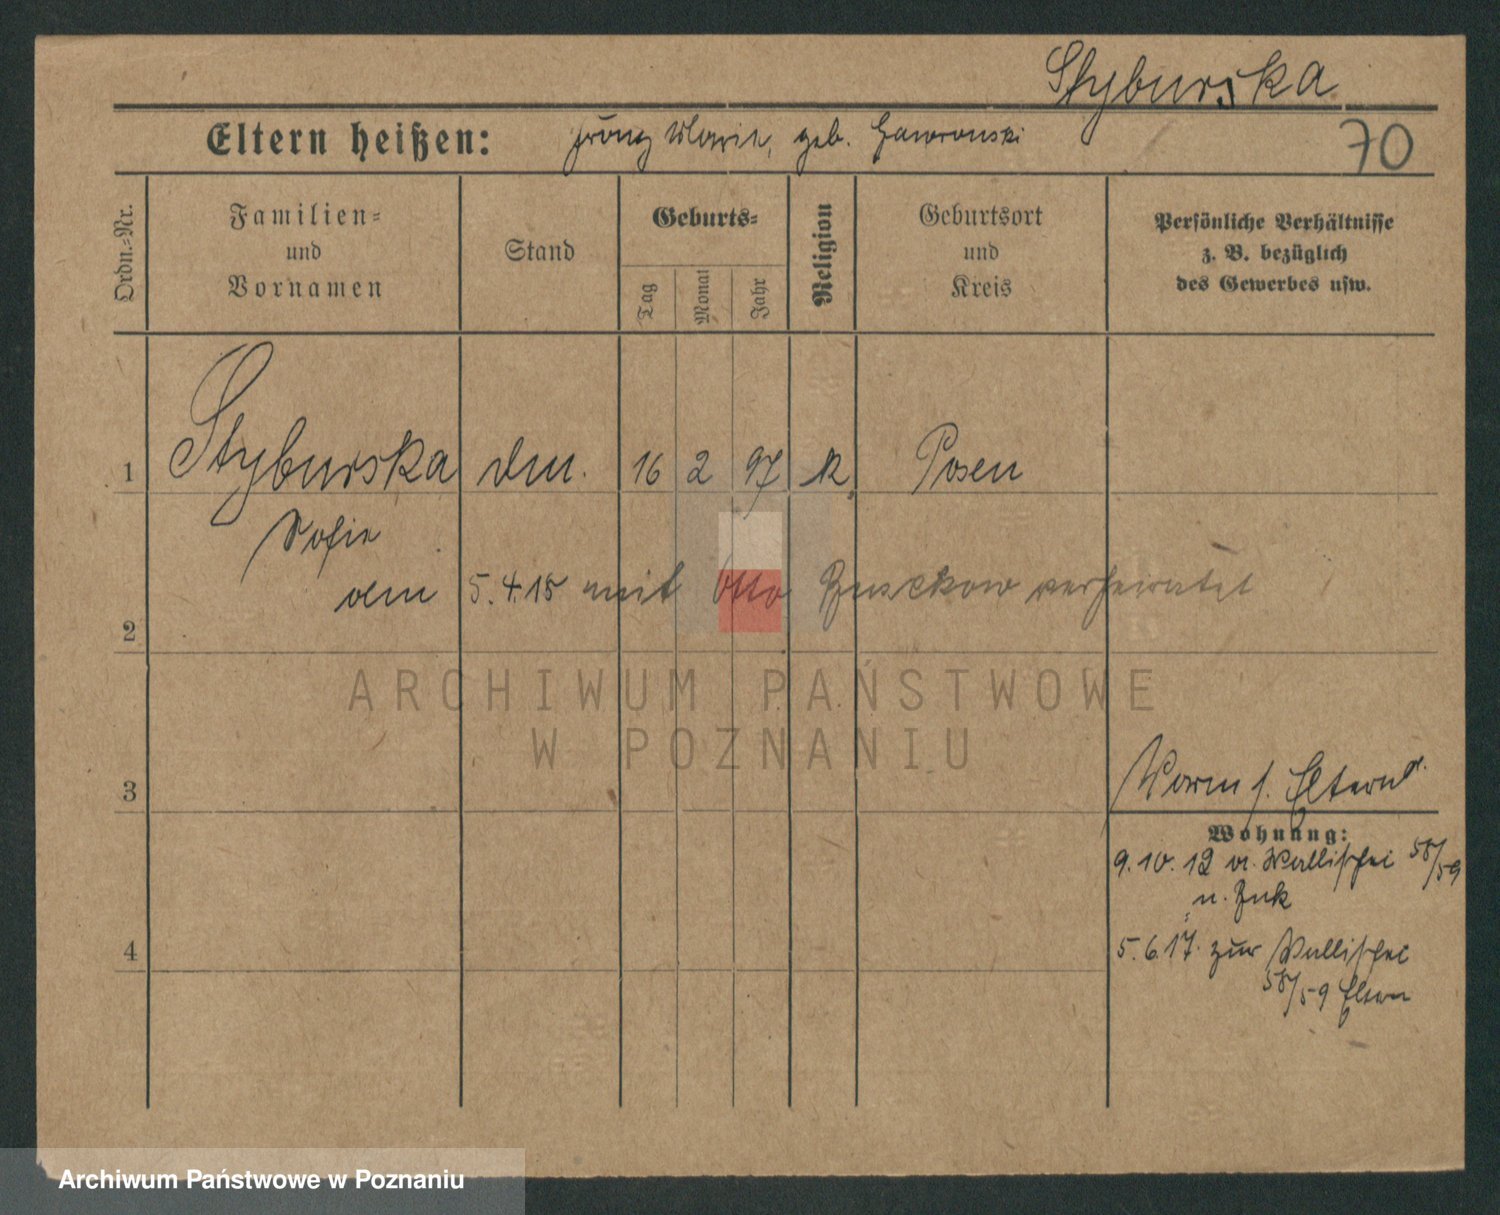 Styburska
Eltern heißen: Franz Marie, geb. Gawronski
70
Ordn.-Nr.
Familien- und Vornamen
Stand
Geburts-
Tag Monat Jahr
Religion
Geburtsort und Kreis
Persönliche Verhältnisse z. B. bezüglich des Gewerbes usw.
1 Styburska 16 2 97 K Posen
Sofie
2 5.4.18 mit Otto verheiratet
ARCHIWUM PAŃSTWOWE
W POZNANIU
3 Eltern
Wohnung:
9.10.12 v. Wallischei 58/59
4 5.6.17. zur Wallischei
58/59 Eltern
Archiwum Państwowe w Poznaniu